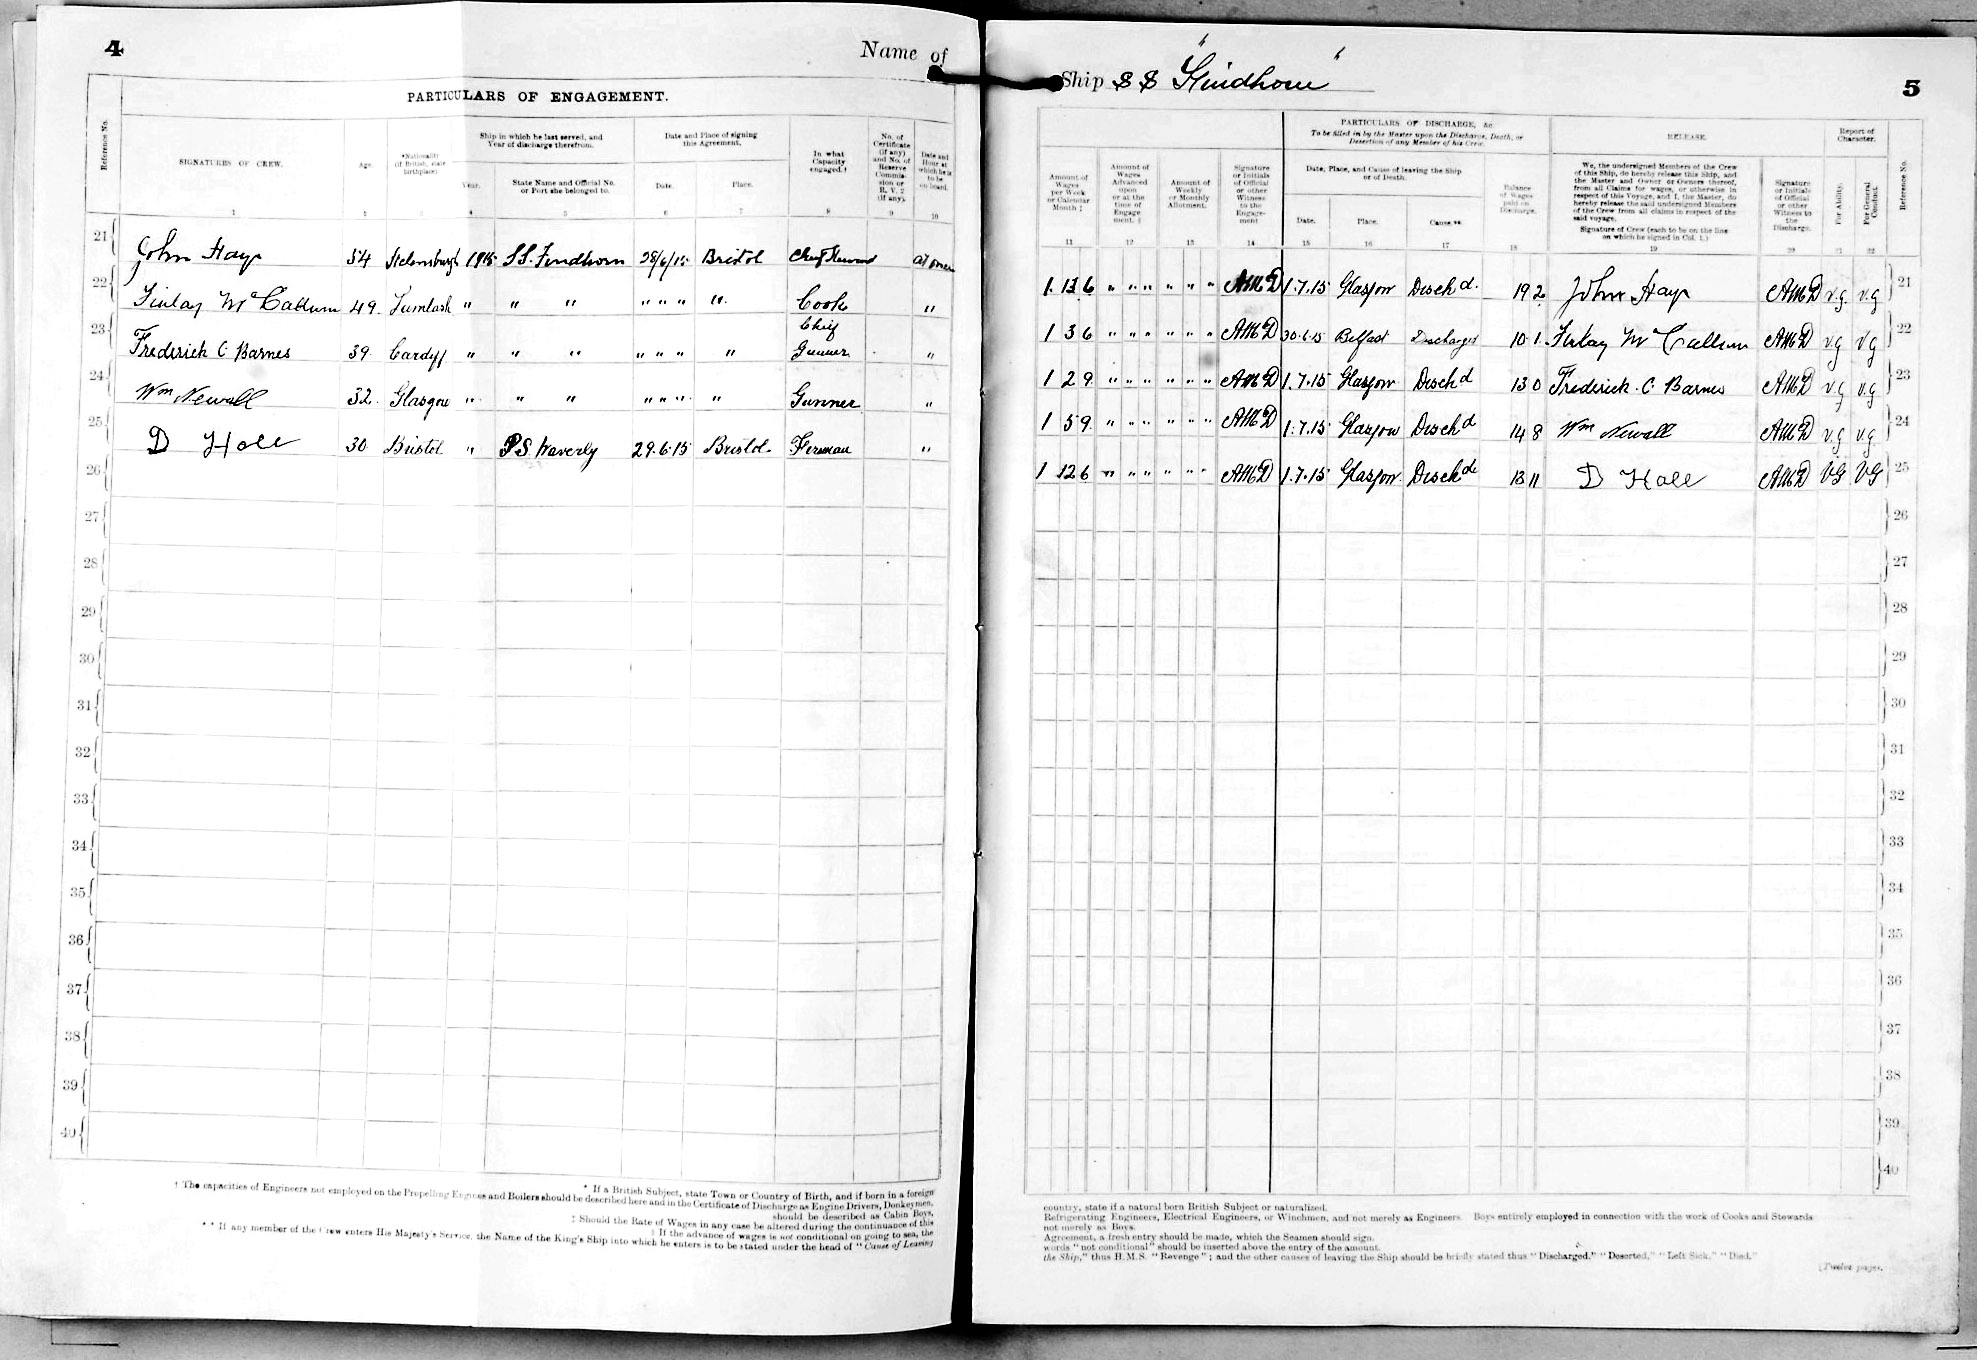 4
Name of
PARTICULARS OF ENGAGEMENT.
Reference No.
SIGNATURES OF CREW.
Age.
*Nationality
(if British, state
birthplace)
Ship in which he last served, and
Year of discharge therefrom.
Year.
State Name and Official No.
or Port she belonged to.
Date and Place of signing
this Agreement.
Date.
Place.
In what
Capacity
engaged.†
No. of
Certificate
(if any)
and No. of
Reserve
Commis-
sion or
R.V.2
(if any).
Date and
Hour at
which he is
to be
on board.
1 2 3 4 5 6 7 8 9 10
21 John Hays 54 Helensburgh 1915 SS. Findhorn 28/6/15 Bristol Chief Steward at once
22 Finlay McCallum 49 " " " " " " " Cook "
23 Frederick C Barnes 39 Cardiff " " " " " " " Chief Gunner "
24 Wm Newall 32 Glasgow " " " " " " " Gunner "
25 D Hole 30 Bristol " P.S Waverly 29.6.15 Bristol Fireman "
26
27
28
29
30
31
32
33
34
35
36
37
38
39
40
* If a British Subject, state Town or Country of Birth, and if born in a foreign
† The capacities of Engineers not employed on the Propelling Engines and Boilers should be described here and in the Certificate of Discharge as Engine Drivers, Donkeymen,
should be described as Cabin Boys,
‡ Should the Rate of Wages in any case be altered during the continuance of this
‖ If the advance of wages is not conditional on going to sea, the
** If any member of the Crew enters His Majesty's Service, the Name of the King's Ship into which he enters is to be stated under the head of "Cause of Leaving
Ship SS "Findhorn"
5
PARTICULARS OF DISCHARGE, &c.
To be filled in by the Master upon the Discharge, Death, or
Desertion of any Member of his Crew.
RELEASE.
Report of
Character.
Amount of
Wages
per Week
or Calendar
Month ‡
Amount of
Wages
Advanced
upon
or at the
time of
Engage
ment. ‖
Amount of
Weekly
or Monthly
Allotment.
Signature
or Initials
of Official
or other
Witness
to the
Engage-
ment
Date, Place, and Cause of leaving the Ship
or of Death.
Date.
Place.
Cause.**
Balance
of Wages
paid on
Discharge.
We, the undersigned Members of the Crew
of this Ship, do hereby release this Ship, and
the Master and Owner or Owners thereof,
from all Claims for wages, or otherwise in
respect of this Voyage, and I, the Master, do
hereby release the said undersigned Members
of the Crew from all claims in respect of the
said voyage.
Signature of Crew (each to be on the line
on which he signed in Col. 1.)
Signature
or Initials
of Official
or other
Witness to
the
Discharge.
For Ability.
For General
Conduct.
Reference No.
11 12 13 14 15 16 17 18 19 20 21 22
1 13 6 " " " " " " AMcD 1.7.15 Glasgow Disch d. 19 2 John Hays AMcD v.g. v.g 21
1 3 6 " " " " " " AMcD 30.6.15 Belfast Discharged 10 1 Finlay McCallum AMcD v.g v.g 22
1 2 9 " " " " " " AMcD 1.7.15 Glasgow Disch d 13 0 Frederick C Barnes AMcD v.g v.g 23
1 5 9 " " " " " " AMcD 1.7.15 Glasgow Disch d 14 8 Wm Newall AMcD v.g v.g. 24
1 12 6 " " " " " " AMcD 1.7.15 Glasgow Disch d 13 11 D Hole AMcD VG VG 25
26
27
28
29
30
31
32
33
34
35
36
37
38
39
40
country, state if a natural born British Subject or naturalized.
Refrigerating Engineers, Electrical Engineers, or Winchmen, and not merely as Engineers. Boys entirely employed in connection with the work of Cooks and Stewards
not merely as Boys.
Agreement, a fresh entry should be made, which the Seamen should sign.
words "not conditional" should be inserted above the entry of the amount.
the Ship," thus H.M.S. "Revenge"; and the other causes of leaving the Ship should be briefly stated thus "Discharged," "Deserted," "Left Sick," "Died."
[Twelve pages.